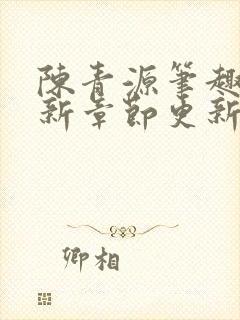 陳青源筆趣
新章節更新
卿相